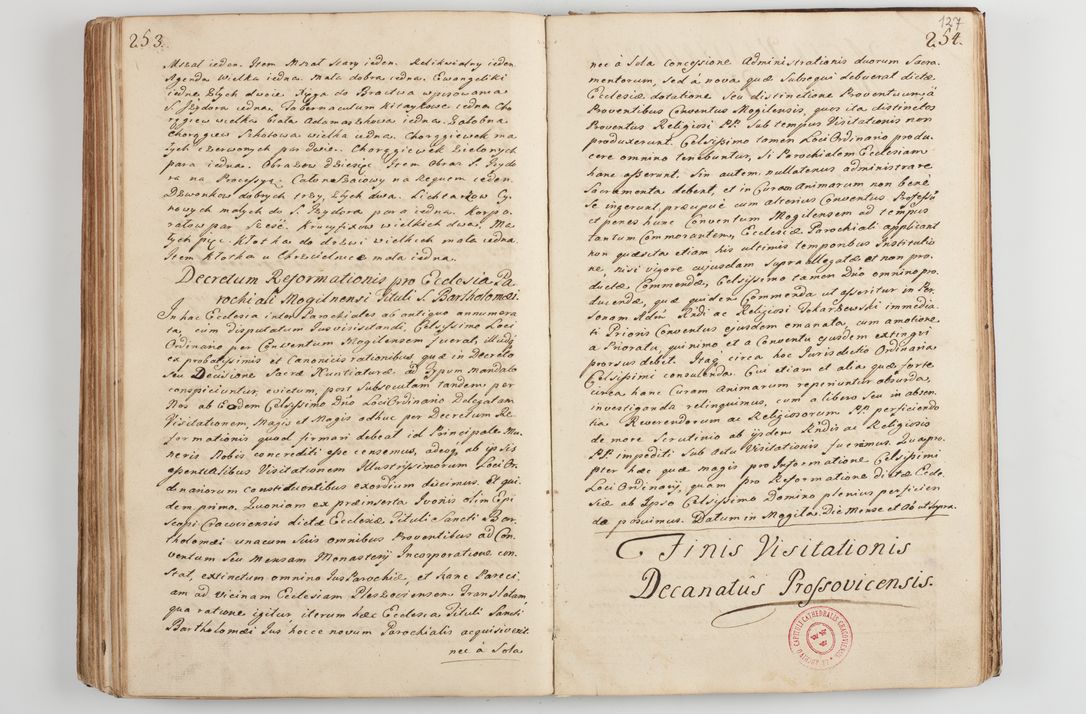 253.
Mszał ieden. Item Mszał stary ieden. Relikwialny ieden
Agenda Wielka iedna. Mała dobra iedna. Ewangeliki
iedne złych dwoie. Xięga do Bractwa wpisowania
S. Jzydora iedna. Tabernaculum kitaykowe iedne Cho
rągiew wielka biała Adamaszkowa iedna. Żałobna
Chorągiew Szkołowa wielka iedna. Chorągiewek ma
łych czerwonych par dwie. Chorągiewek zielonych
para iedna. Obrazow dziesięć Item Obraz S. Jzydo
ra na Processyą. Całun Szaiowy na Requiem ieden.
Dzwonkow dobrych trzy, złych dwa. Lichtarzow Cy
nowych małych do S. Jzydora para iedna. Korpo
rałow par sześć. Krucyfixow wielkich dwa. Ma
łych pięć. Kłotka do drzwi wielkich mała iedna.
Item Kłotka u Chrzcielnice mała iedna.
Decretum Reformationis pro Ecclesia Pa
rochiali Mogilnensi Tituli S. Bartholomæi.
In hac Ecclesia inter Parochiales ab antiquo annumera
ta, cum disputatum Jus visitandi, Celsissimo Loci
Ordinario per Conventum Mogilensem fuerat, illudq
ex probatissimis et Canonicis rationibus, quæ in Decreto
seu Decisione Sacræ Nuntiaturæ ad Typum mandato
conspiciuntur, evictum, post subsecutam tandem per
Nos ab Eodem Celsissimo Dno Loci Ordinario Delegatam
Visitationem, Magis et Magis adhuc per Decretum Re
formationis quod firmari debeat id Principale Mu
neris Nobis concrediti esse censemus, adeoq ab ipsis
essentialibus Visitationem Illustrissimorum Loci Or
dinariorum constituentibus exordium dicimus. Et qui
dem primo. Quoniam ex præinserta Jvonis olim Epi
scopi Cracoviensis dictæ Ecclesiæ Tituli Sancti Bar
tholomæi unacum suis omnibus Proventibus ad Con
ventum seu Mensam Monasterij Incorporatione con
stat, extinctum omnino Jus Parochiæ, et hanc Paroci
am ad vicinam Ecclesiam Pleszoviensem Translatam,
qua ratione igitur iterum hæc Ecclesia Tituli Sancti
Bartholomæi Jus hocce novum Parochialis acquisiverit
nec à Sola
127
254.
nec à Sola concessione Administrationis duorum Sacra
mentorum, sed à nova quæ Subsequi debuerat dictæ
Ecclesiæ dotatione seu distinctione Proventuum à
Proventibus Conventus Mogilensis, quos ita distinctos
Proventus Religiosi PP. Sub tempus Visitationis non
produxerunt. Celsissimo tamen Loci Ordinario produ
cere omnino tenebuntur, Si Parochialem Ecclesiam
hanc asserunt. Sin autem, nullatenus administrare
Sacramenta debent, et in Curam Animarum non bene
se ingerunt, præcipuè cum alterius Conventus Professo
et penes hunc Conventum Mogilensem ad tempus
tantum Commorantem, Ecclesiæ Parochiali applicant
non quæsita etiam his ultimis temporibus Institutio
ne, nisi vigore cujusdam Supra allegatæ et non pro
ductæ Commendæ, Celsissimo tamen Dno omnino pro
ducendæ, quæ quidem Commenda ut asseritur in Per
sonam Adm Rndi ac Religiosi Tokarzewski immedia
ti Prioris Conventus ejusdem emanata, cum amotione
a Prioratu, qui nino et a Conventu ejusdem extingvi
prorsus debet. Itaq circa hoc Jurisdictio Ordinaria
Celsissimi consulenda. Cui etiam et alia quæ forte
circa hanc Curam Animarum reperiuntur absurda,
investiganda relinquimus, cum a libero seu in absen
tia Reverendorum ac Religiosorum PP. perficiendo
de more Scrutinio ab ijsdem Rndis ac Religiosis
PP. impediti Sub Actu Visitationis fuerimus. Quapro
pter hæc quæ magis pro Informatione Celsissimi
Loci Ordinarij, quam pro Reformatione dictæ Eccle
siæ ab Ipso Celsissimo Domino plenius perficien
da posuimus. Datum in Mogiła. Die Mense et Ao ut supra.
Finis Visitationis
Decanatûs Prossovicensis.
ARCHIVUM CAPITULI CATHEDRALIS CRACOVIENSIS